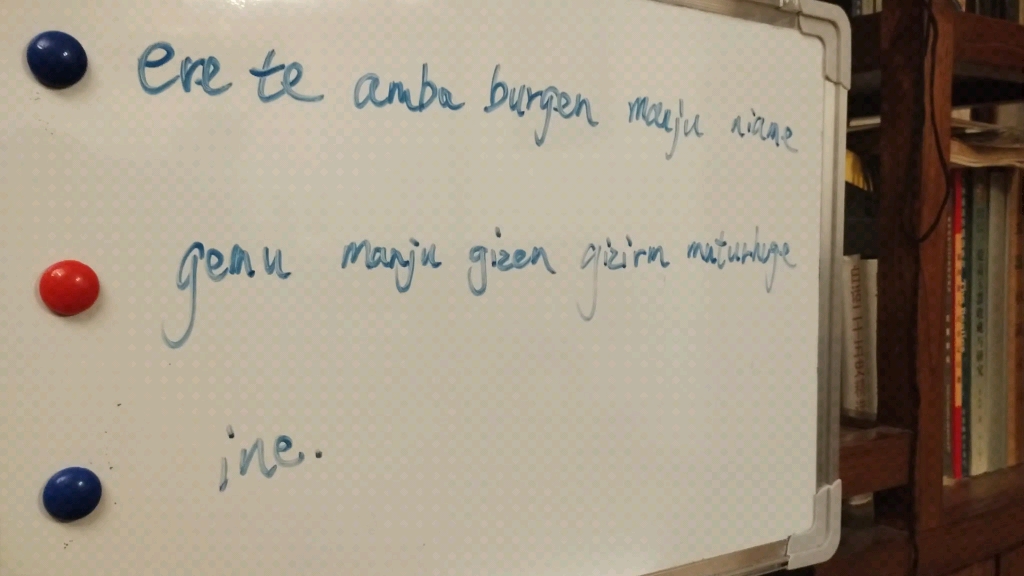 Ere te amba burgen manju niame
gemu manju gizen gizirm muturhuge
ine.